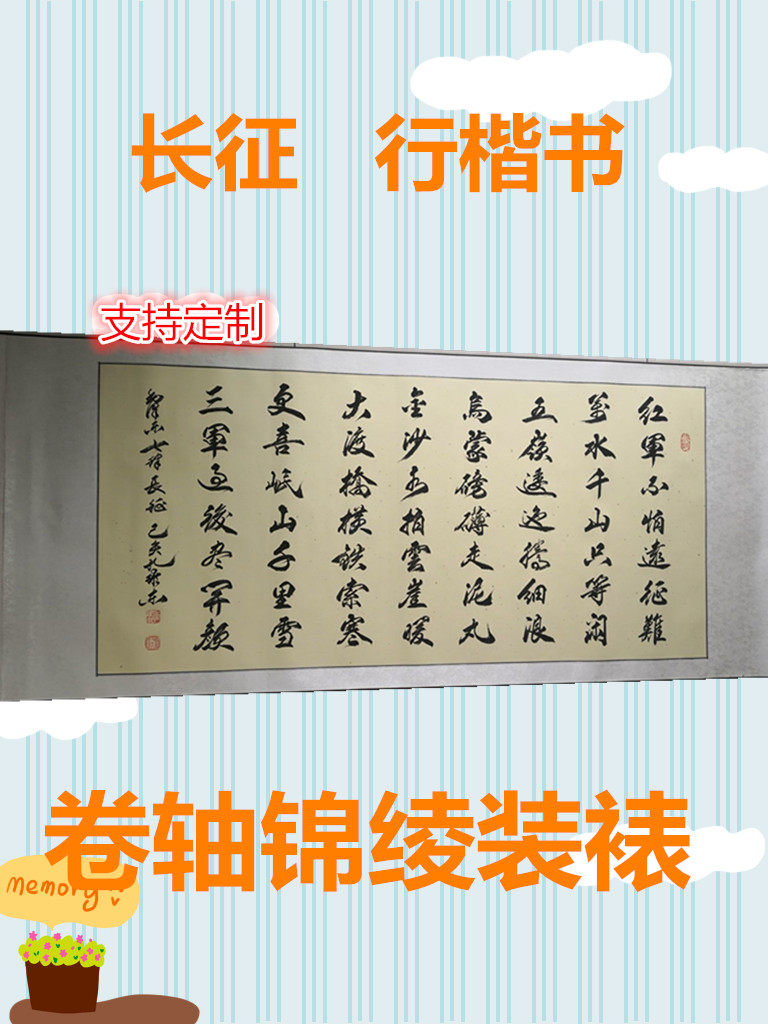 长征 行楷书
支持定制
红軍不怕遠征難
萬水千山只等闲
五嶺逶迤騰细浪
烏蒙磅礴走泥丸
金沙水拍雲崖暖
大渡橋横鉄索寒
更喜岷山千里雪
三軍过後尽開颜
毛泽东七律長征 己亥
卷轴锦绫装裱
memory!!